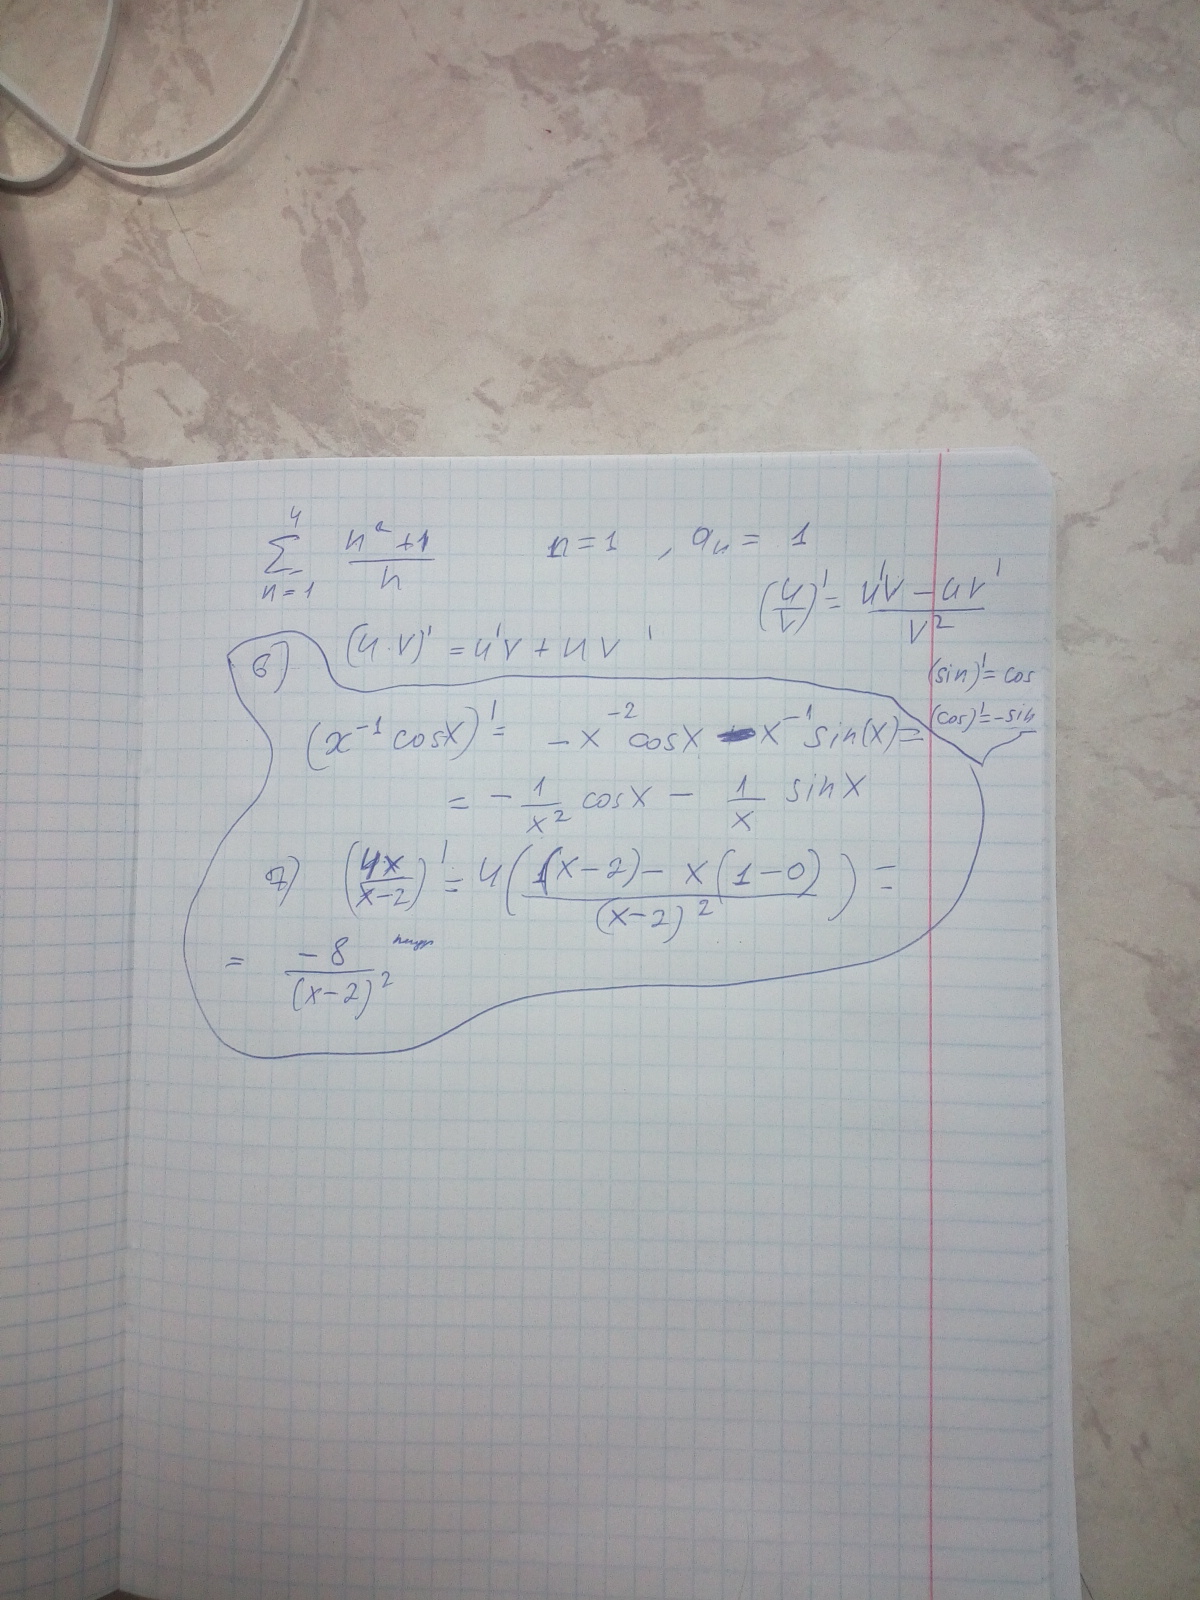 4
Σ (n² + 1)/n    n = 1 , aₙ = 1
n = 1
(u/v)' = (u'v - uv')/v²
(u · v)' = u'v + uv'
6)
(sin)' = cos
(cos)' = -sin
(x⁻¹ cosx)' = -x⁻² cosx - x⁻¹ sin(x) =
= - 1/x² cosx - 1/x sinx
7) (4x/(x-2))' = 4( (1(x-2) - x(1-0))/(x-2)² ) =
= -8/(x-2)²